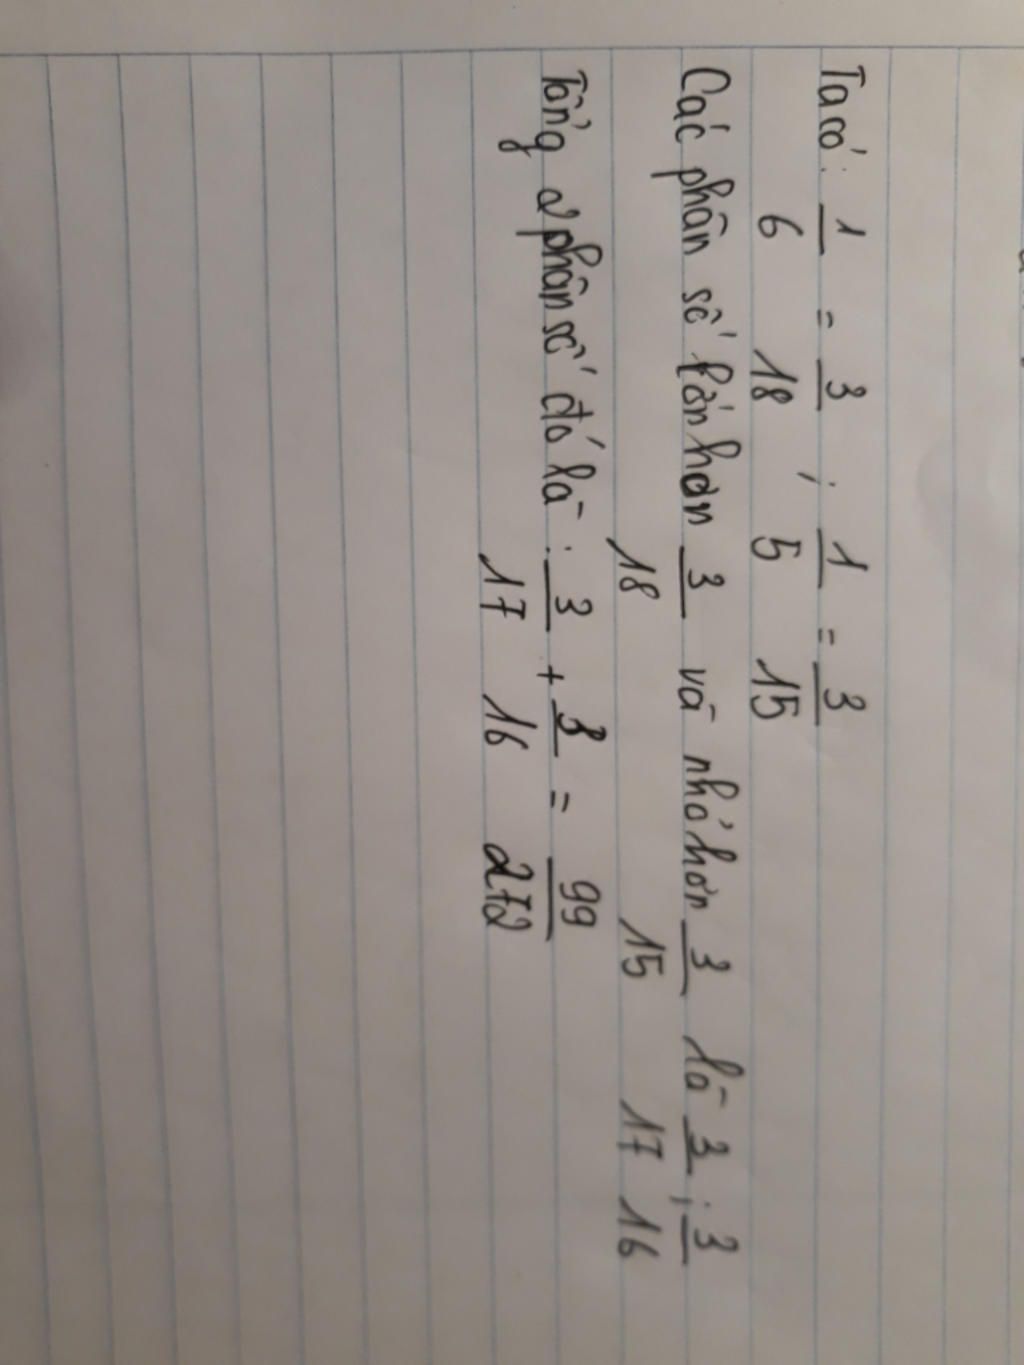 Ta có: 1/6 = 3/18 ; 1/5 = 3/15
Các phân số lớn hơn 3/18 và nhỏ hơn 3/15 là 3/17 ; 3/16
Tổng 2 phân số đó là : 3/17 + 3/16 = 99/272